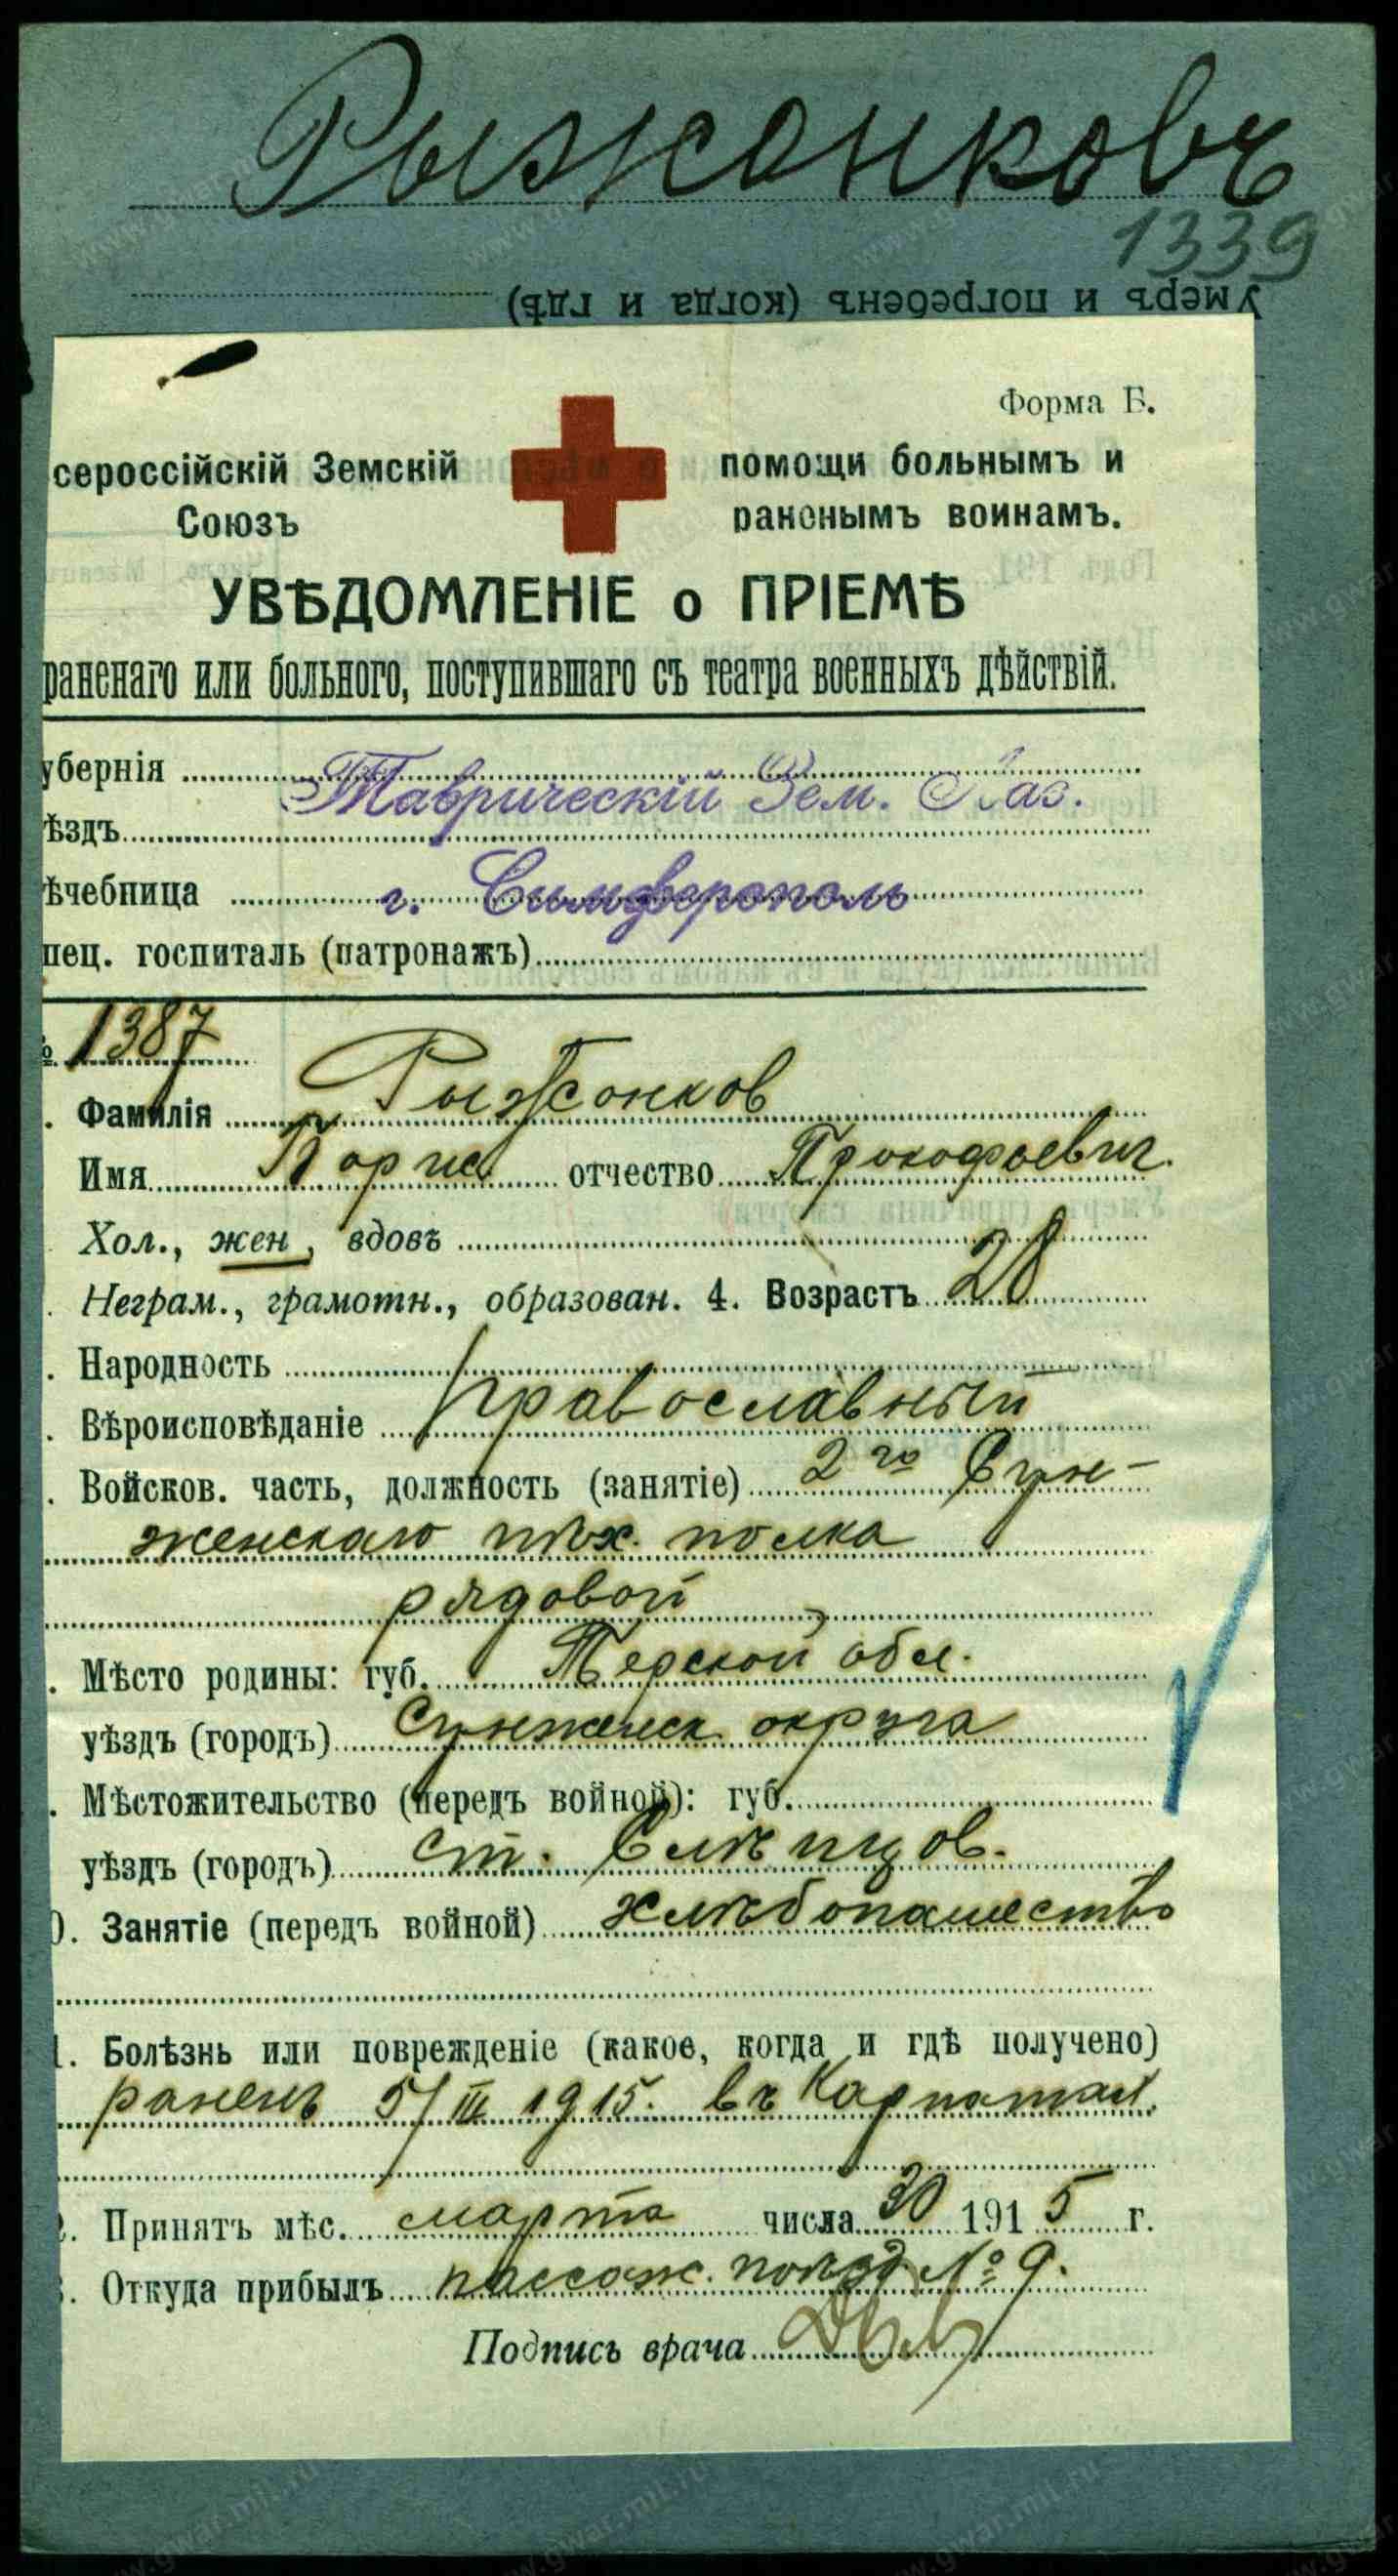 Рыжонковъ
1339
Умеръ и погребенъ (когда и гдѣ)
Форма Б.
сероссійскій Земскій
Союзъ
помощи больнымъ и
раненымъ воинамъ.
УВѢДОМЛЕНІЕ о ПРІЕМѢ
раненаго или больного, поступившаго съ театра военныхъ дѣйствій.
убернія
Таврическій Зем. Лаз.
ѣздъ
ѣчебница г. Симферополь
пец. госпиталь (патронажъ)
№ 1387
. Фамилія Рыжонков
Имя Борис отчество Прокофьевич
Хол., жен, вдовъ
. Неграм., грамотн., образован. 4. Возрастъ 28
. Народность
. Вѣроисповѣданіе православный
. Войсков. часть, должность (занятіе) 2го Сун-
женскаго пѣх. полка
рядовой
. Мѣсто родины: губ. Терской обл.
уѣздъ (городъ) Сунженск округа
. Мѣстожительство (передъ войной): губ.
уѣздъ (городъ) ст. Слѣпцов.
0. Занятіе (передъ войной) хлѣбопашество
1. Болѣзнь или поврежденіе (какое, когда и гдѣ получено)
раненъ 5/III 1915. въ Карпатах.
2. Принятъ мѣс. марта числа 30 1915 г.
3. Откуда прибылъ пассаж. поѣзд № 9.
Подпись врача
www.gwar.mil.ru